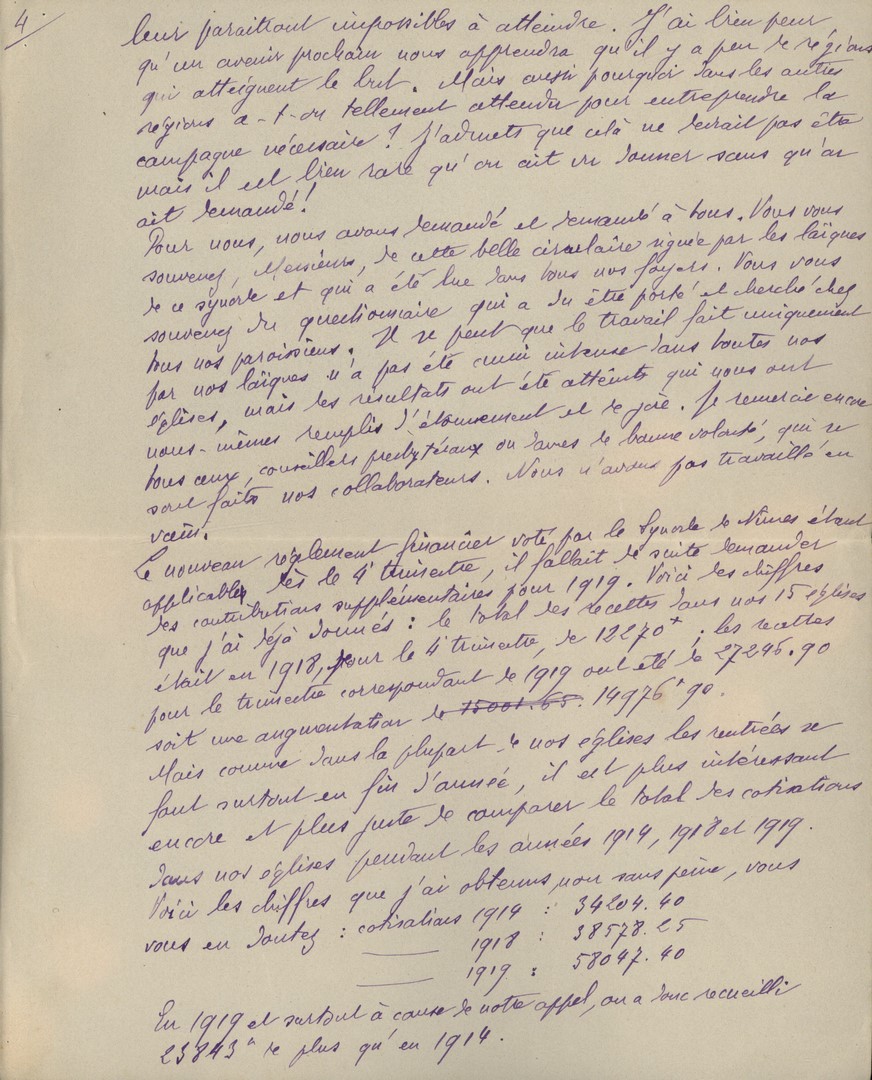 4
leur paraîtront impossibles à atteindre. J'ai bien peur
qu'un avenir prochain nous apprendra qu'il y a peu de régions
qui atteignent le but. Mais aussi pourquoi dans les autres
régions a-t-on tellement attendu pour entreprendre la
campagne nécessaire? J'admets que celà ne devrait pas être
mais il est bien rare qu'on ait vu donner sans qu'on
ait demandé!
Pour nous, nous avons demandé et demandé à tous. Vous vous
souvenez, Messieurs, de cette belle circulaire signée par les laïques
de ce synode et qui a été lue dans tous nos foyers. Vous vous
souvenez du questionnaire qui a dû être porté et cherché chez
tous nos paroissiens. Il se peut que le travail fait uniquement
par nos laïques n'a pas été aussi intense dans toutes nos
églises, mais les résultats ont été atteints qui nous ont
nous-mêmes remplis d'étonnement et de joie. Je remercie encore
tous ceux, conseillers presbytéraux ou dames de bonne volonté, qui se
sont faits nos collaborateurs. Nous n'avons pas travaillé en
vain.
Le nouveau règlement financier voté par le Synode de Nîmes étant
applicable dès le 4e trimestre, il fallait de suite demander
des contributions supplémentaires pour 1919. Voici les chiffres
que j'ai déjà donnés: le total des recettes dans nos 15 églises
était en 1918, pour le 4e trimestre, de 12270 f; les recettes
pour le trimestre correspondant de 1919 ont été de 27246.90
soit une augmentation de 15001.65. 14976 f 90.
Mais comme dans la plupart de nos églises les rentrées se
font surtout en fin d'année, il est plus intéressant
encore et plus juste de comparer le total des cotisations
dans nos églises pendant les années 1914, 1918 et 1919.
Voici les chiffres que j'ai obtenus, non sans peine, vous
vous en doutez: cotisations 1914 : 34204.40
—— 1918 : 38578.25
—— 1919 : 58047.40
En 1919 et surtout à cause de notre appel, on a donc recueilli
23843 f de plus qu'en 1914.